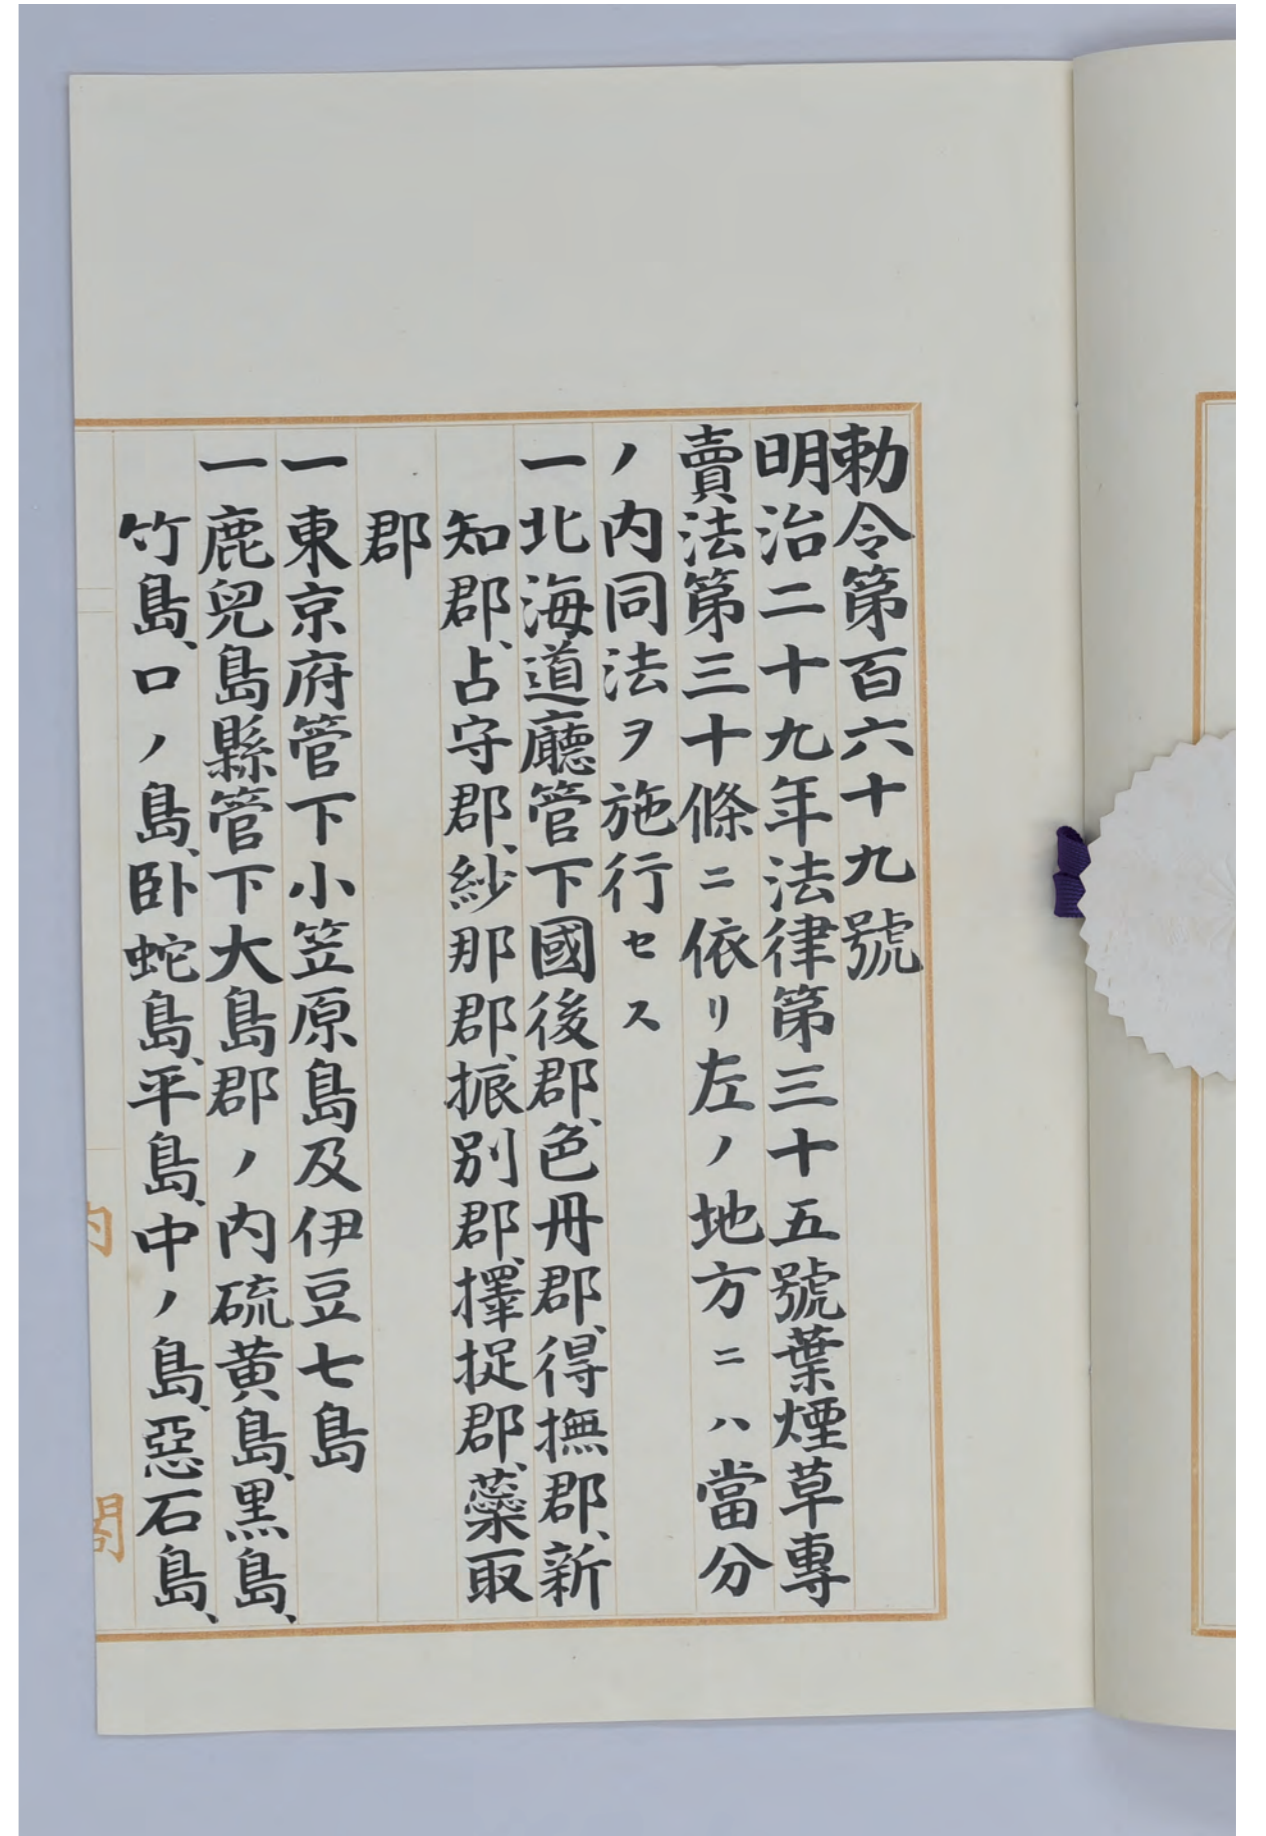 勅令第百六十九號
明治二十九年法律第三十五號葉煙草專
賣法第三十條ニ依リ左ノ地方ニハ當分
ノ内同法ヲ施行セス
一北海道廳管下國後郡、色丹郡、得撫郡、新
知郡、占守郡、紗那郡、振別郡、擇捉郡、蘂取
郡
一東京府管下小笠原島及伊豆七島
一鹿兒島縣管下大島郡ノ内硫黄島、黒島、
竹島、口ノ島、臥蛇島、平島、中ノ島、惡石島、
内閣